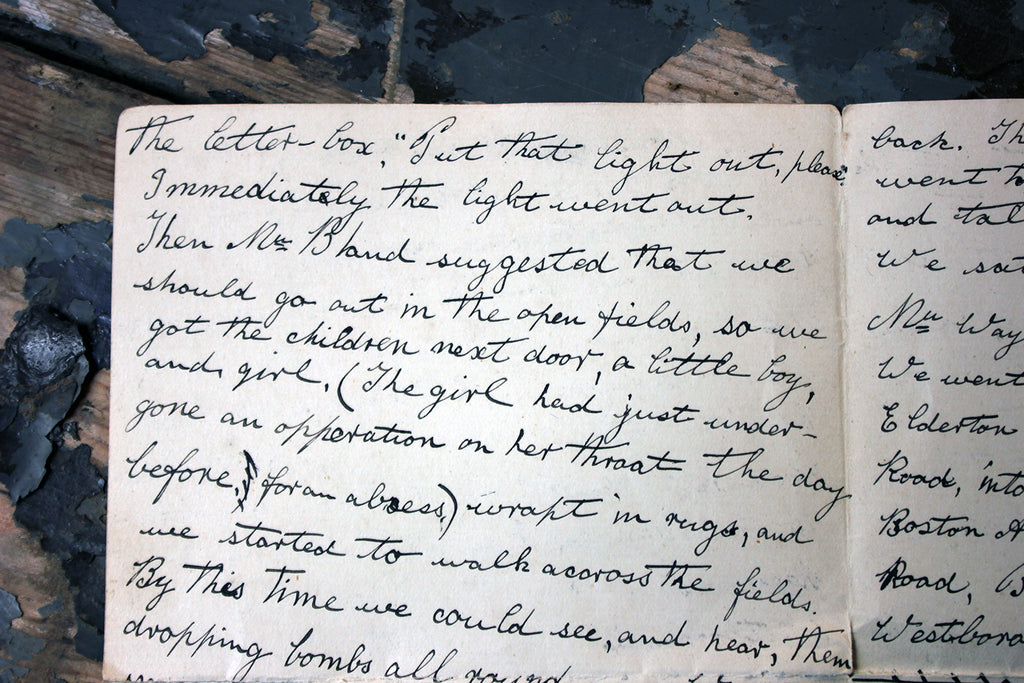 the letter-box, "Put that light out, please".
Immediately the light went out.
Then Mrs Bland suggested that we
should go out in the open fields, so we
got the children next door, a little boy,
and girl. (The girl had just under-
gone an opperation on her throat the day
before, for an absess,) wrapt in rugs, and
we started to walk accross the fields.
By this time we could see, and hear, them
dropping bombs all round
back.
went
and
We
Mrs
We went
Elderton
Road, into
Boston
Road,